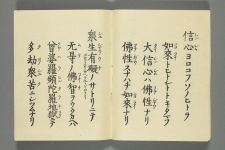 信心ヨロコフソノヒトヲ
如来トヒトシトトキタマフ
大信心ハ佛性ナリ
佛性スナハチ如来ナリ
衆生有礙ノサトリニテ
无碍ノ佛智ヲウタカヘハ
曾婆羅頻陀羅地獄ニテ
多劫衆苦ニシツムナリ